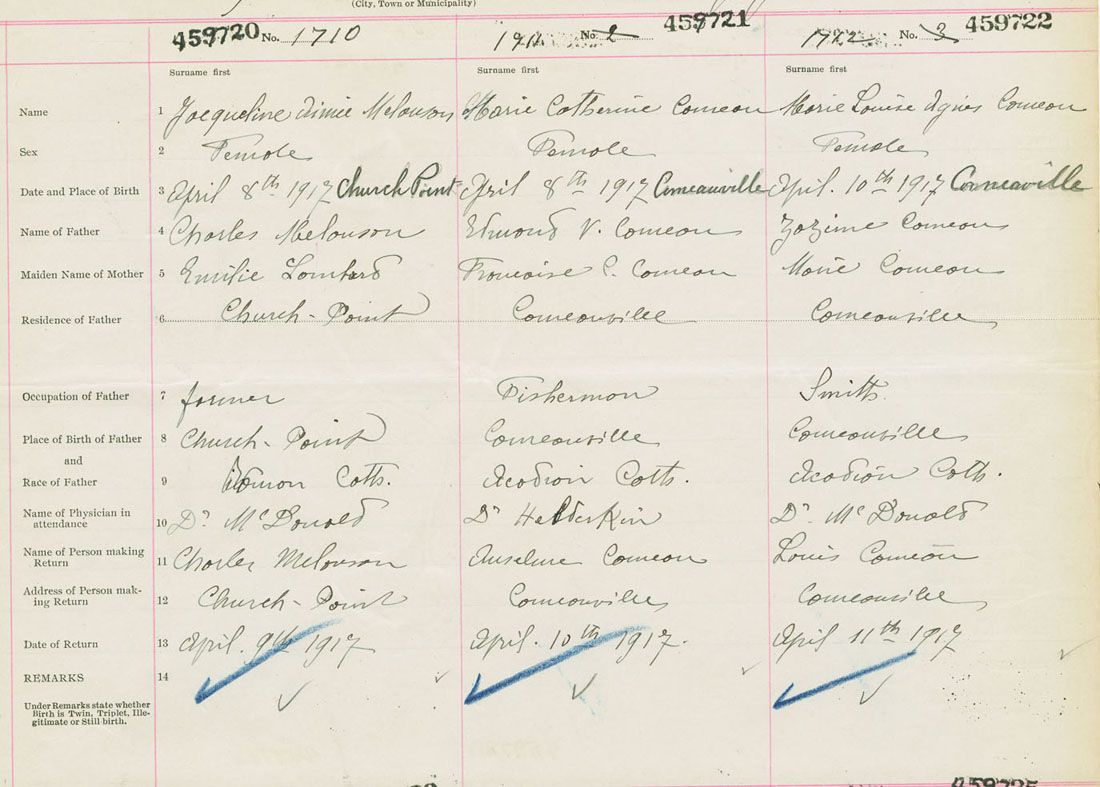 (City, Town or Municipality)
459720 No. 1710 No. 2 459721 No. 3 459722
Surname first Surname first Surname first
Name 1 Jacqueline Aimie Melanson Marie Catherine Comeau Marie Louise Agnes Comeau
Sex 2 Female Female Female
Date and Place of Birth 3 April 8th 1917 Church Point April 8th 1917 Comeauville April. 10th 1917 Comeauville
Name of Father 4 Charles Melanson Edmond V. Comeau Zozime Comeau
Maiden Name of Mother 5 Emilie Lombard Francoise C. Comeau Marie Comeau
Residence of Father 6 Church-Point Comeauville Comeauville
Occupation of Father 7 farmer Fisherman Smith
Place of Birth of Father 8 Church-Point Comeauville Comeauville
and
Race of Father 9 Coths. Acadian Coths. Acadian Coths.
Name of Physician in
attendance 10 Dr McDonald Dr Dr. McDonald
Name of Person making
Return 11 Charles Melanson Anselme Comeau Louis Comeau
Address of Person mak-
ing Return 12 Church-Point Comeauville Comeauville
Date of Return 13 April. 9th 1917 April. 10th 1917. April 11th 1917
REMARKS 14
Under Remarks state whether
Birth is Twin, Triplet, Ille-
gitimate or Still birth.